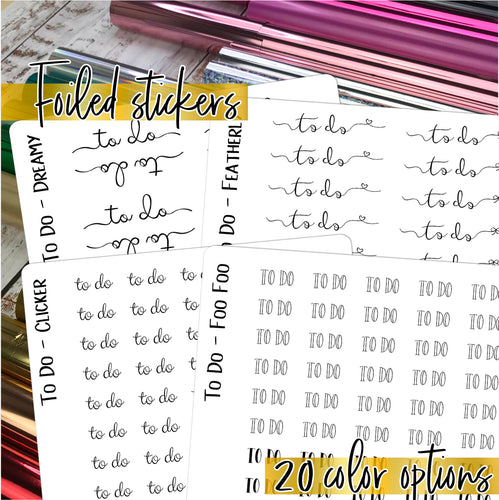 Foiled stickers
To Do - Dreamy
to do
to do
to do
to do
To Do - Featherl
to do to do
to do to do
to do to do
to do to do
to do
To Do - Clicker
to do to do to do
to do to do to
to do to do
to do to do
to do to do
to do to do
to do to do
to do to do
To Do - Foo Foo
TO DO TO DO TO DO TO DO TO DO
TO DO TO DO TO DO TO DO TO DO
TO DO TO DO TO DO TO DO TO DO
TO DO TO DO TO DO TO DO TO DO
TO DO TO DO TO DO TO DO TO DO
TO DO TO DO TO DO TO DO TO DO
TO DO TO DO TO DO TO DO TO DO
20 color options